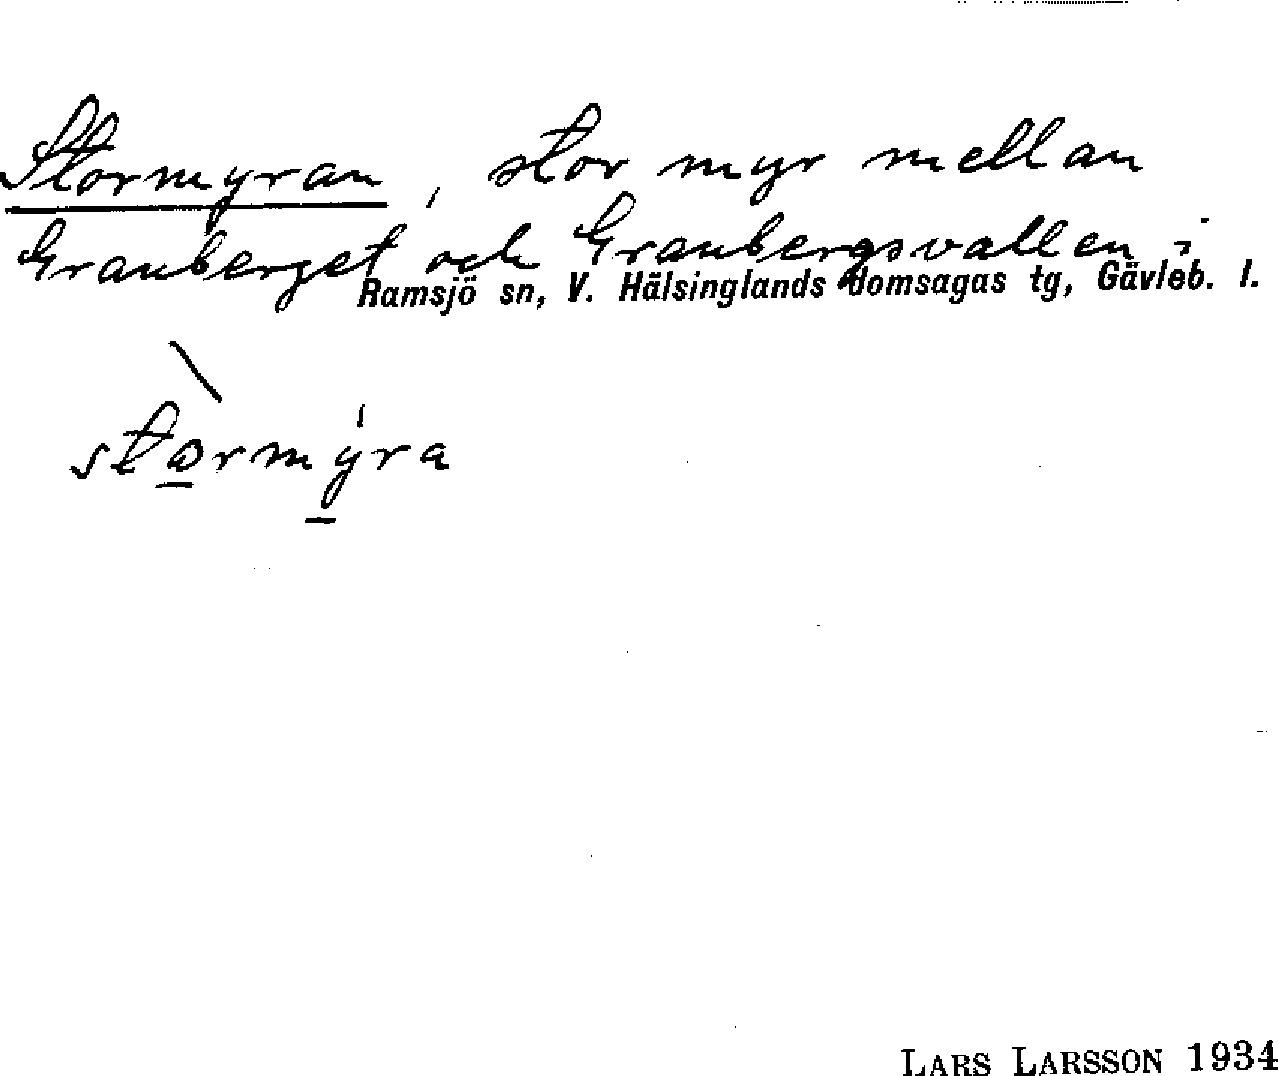 Stormyran, stor myr mellan
Granberget och Granbergsvallen i
Ramsjö sn, V. Hälsinglands domsagas tg, Gävleb. l.
stormyra
LARS LARSSON 1934